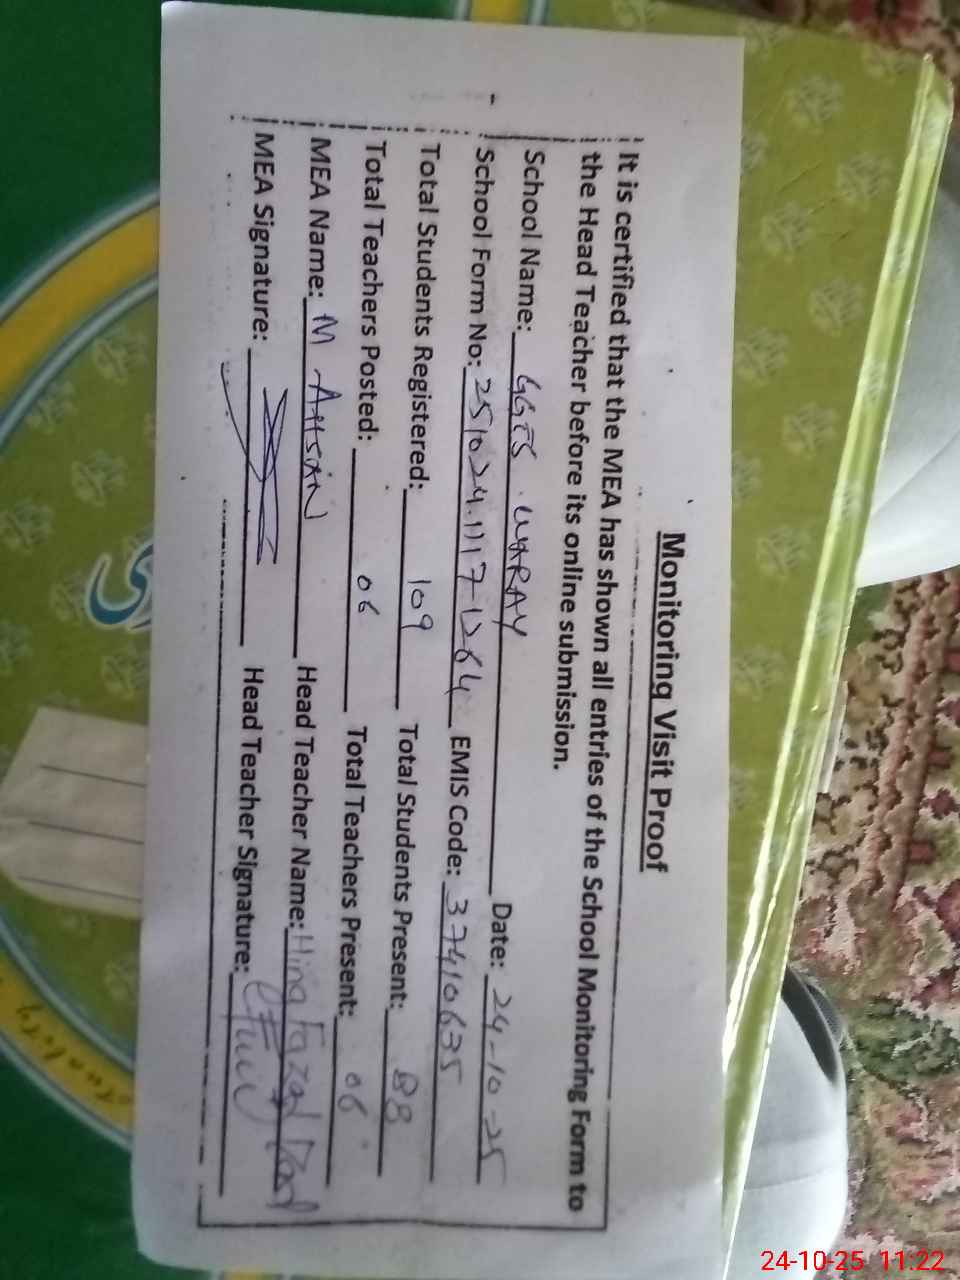 Monitoring Visit Proof
It is certified that the MEA has shown all entries of the School Monitoring Form to
the Head Teacher before its online submission.
School Name: GGES. Date: 24-10-25
School Form No: EMIS Code: 37410635
Total Students Registered: 109 Total Students Present: 88
Total Teachers Posted: 06 Total Teachers Present: 06
MEA Name: M AHSAN Head Teacher Name: Hina
MEA Signature: Head Teacher Signature:
24-10-25 11:22